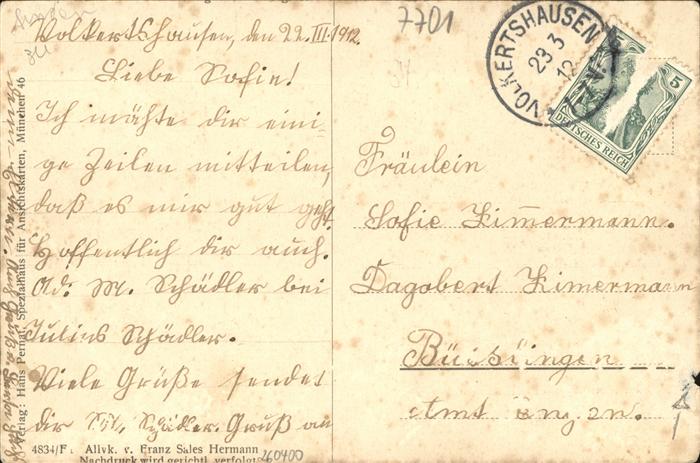 7701
Volkertshausen, den 22. III. 1912.
Liebe Sofie!
Ich mähte dir eini-
ge Zeilen mitteilen,
daß es mir gut geht.
Hoffentlich dir auch.
Ad: M. Schädler bei
Julius Schädler.
Viele Grüße sendet
dir Schädler. Gruß an
VOLKERTSHAUSEN
23 3
12
5
DEUTSCHES REICH
Fräulein
Sofie Zimermann.
Dagobert Zimermann
Büisingen
Amt
Verlag: Hans Pernat, Spezialhaus für Ansichtskarten, München 46
4834/F: Allvk. v. Franz Sales Hermann
Nachdruck wird gerichtl. verfolgt.
260400